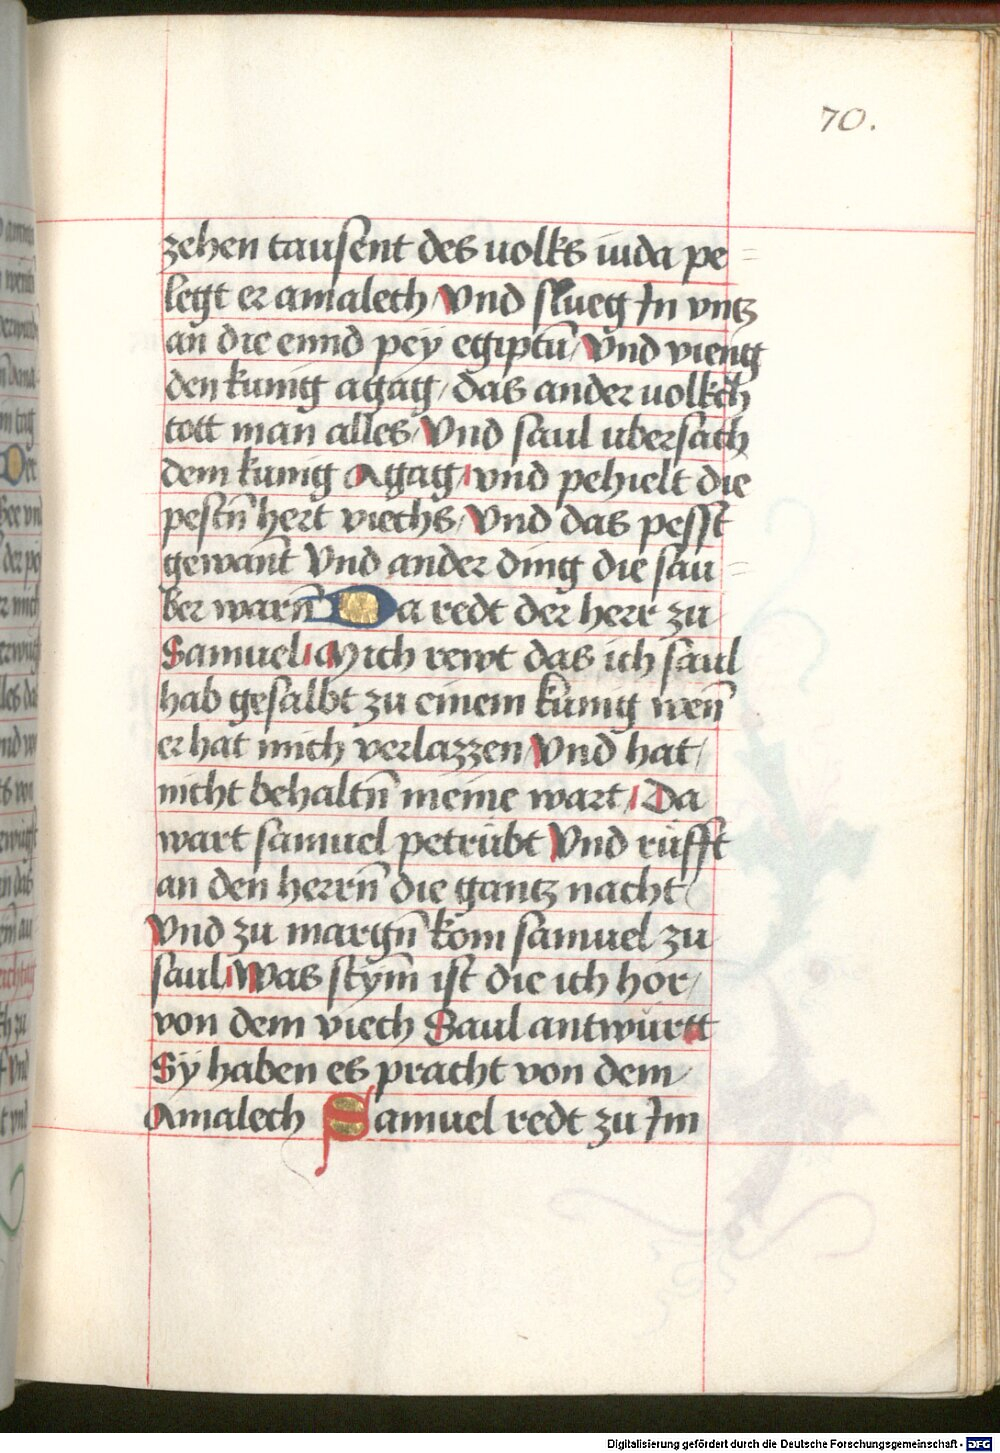 70.
zehen tausent des uolks iuda pe=
legt er amalech / Vnd slueg Jn vntz
an die ennd pey egiptū / Vnd vieng
den kunig agag / das ander uolkch
tott man alles / Vnd saul ubersach
dem kunig Agag / vnd pehielt die
pestn̄ hert viechs / Vnd das pesst
gewant Vnd ander ding die sau=
ber warn̄ Da redt der herr zu
Samuel / Mich rewt das ich saul
hab gesalbt zu einem kunig wen̄
er hat mich verlazzen / Vnd hat /
nicht behaltn̄ meine wart / Da
wart samuel petrübt Vnd rüfft
an den herrn̄ die gantz nacht /
Vnd zu margn̄ kom samuel zu
saul / Was stym̄ ist die ich hor /
von dem viech Saul antwürtt
Sÿ haben es pracht von dem /
Amalech Samuel redt zu Jm
Digitalisierung gefördert durch die Deutsche Forschungsgemeinschaft - DFG